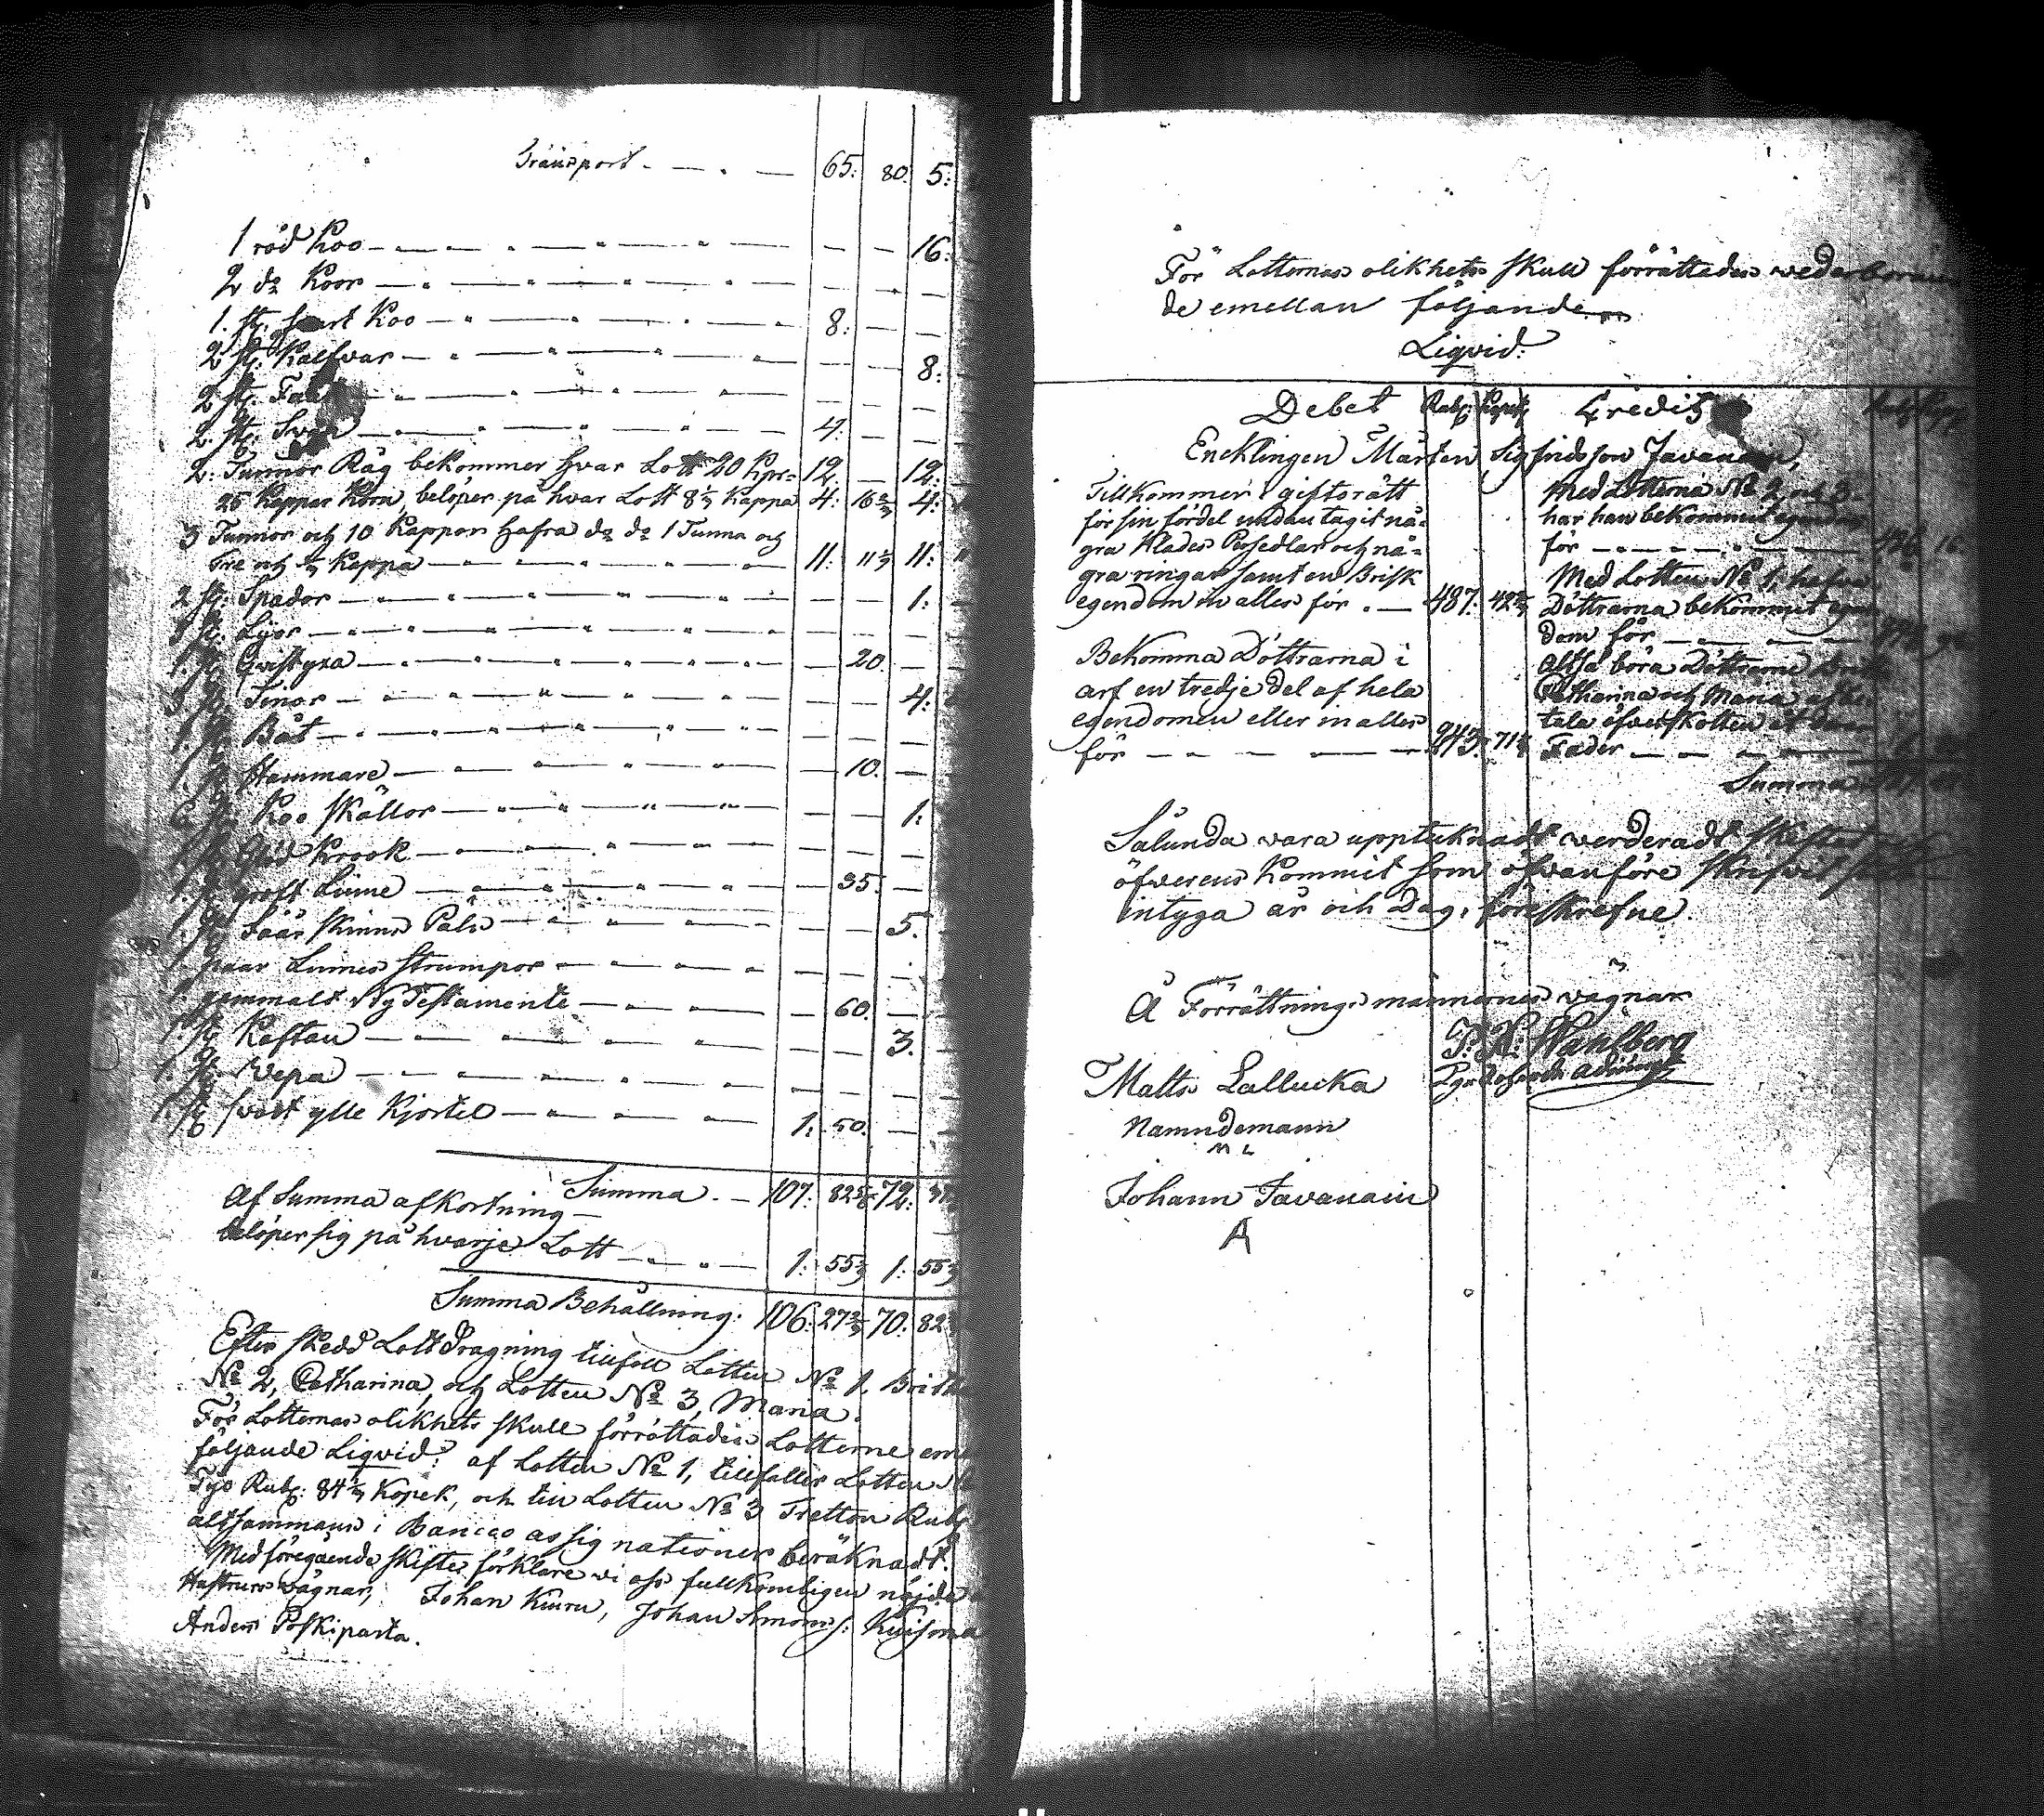 Transport 65: 80. 5:
1 röd Koo 16:
2 do Koor
1. st. Koo 8:
2 st. Kalfvar 8:
2 st.
2. st. Svyn 4:
2. Tunnor Råg bekommer hvar Lott 20 Kpr= 12. — 12.
25 Kappar Korn, belöper på hvar Lott 8⅓ Kappa 4: 16⅔ 4:
3 Tunnor och 10 Kappar Hafra do do 1 Tunna och
Tre och ⅓ Kappa 11: 11⅓ 11:
2 st: Spador 1:
st. Lijor
1. st. 20.
3 st. Tinor 4:
1. st. Båt
1. st. Hammare 10.
6 st. Koo skällor 1:
1. st. Krook
1. st. groft Linne 35.
1. st. Fåår skinns Päls 5.
1 paar Linnes strumpor
1. gammalt Ny Testamente 60.
1. st. Kaftan 3.
1. st. Wepa
1. st. svart ylle Kjortel 1: 50.
Summa. 107: 82⅚ 72:
Af Summa afkortning
belöper sig på hvarje Lott 1: 55⅓ 1: 55⅓
Summa Behållning: 106: 27 70: 82
Efter skedd Lott Dragning tillföll Lotten No 1,
No 2, Catharina, och Lotten No 3, Maria.
För Lotternas olikhets skull förrättades Lotterne
följande Liqvid: af Lotten No 1, tillfaller Lotten
Tijo Rub: 84 Kopek, och till Lotten No 3 Tretton Rub
altsammans i Banco assignationer beräknadt.
Med föregående skiftes förklare vi oss fullkomligen nöjda
Hustrurs vägnar, Johan Kiuru, Johan Simons: Kuisma
Anders Poskiparta.
För Lotternas olikhets skull förrättades wederböran
de emellan följande
Liqvid:
Debet Rub: Kopek Credit
Encklingen Mårten Sigfridsson Javanain,
Tillkommer i giftorätt
för sin fördel undantagit nå=
gra Klades Persedlar och nå=
gra ringar samt en Brisk
egendom in alles för 487: 42
Bekomma Döttrarna i
arf en tredje del af hela
egendomen eller in alles
för 243: 71
Med Lotterna No 2 och 3
har han bekommit egendom
för
Med Lotten No 1, hafva
Döttrarna bekommit egen
dom för
Altså böra Döttrarne
Catharina och Maria
tala öfverskotten åt deras
Fader
Summa
Sålunda vara upptecknadt werderadt skiftat
öfwerens Kommit som ofvanföre skrifvit
intyga år och Dag, föreskrefne.
Å Förrättnings männernes vägnar
P. H. Wahlberg
Matts Lallucka
Nämndemann
M L
Johann Javanain
A